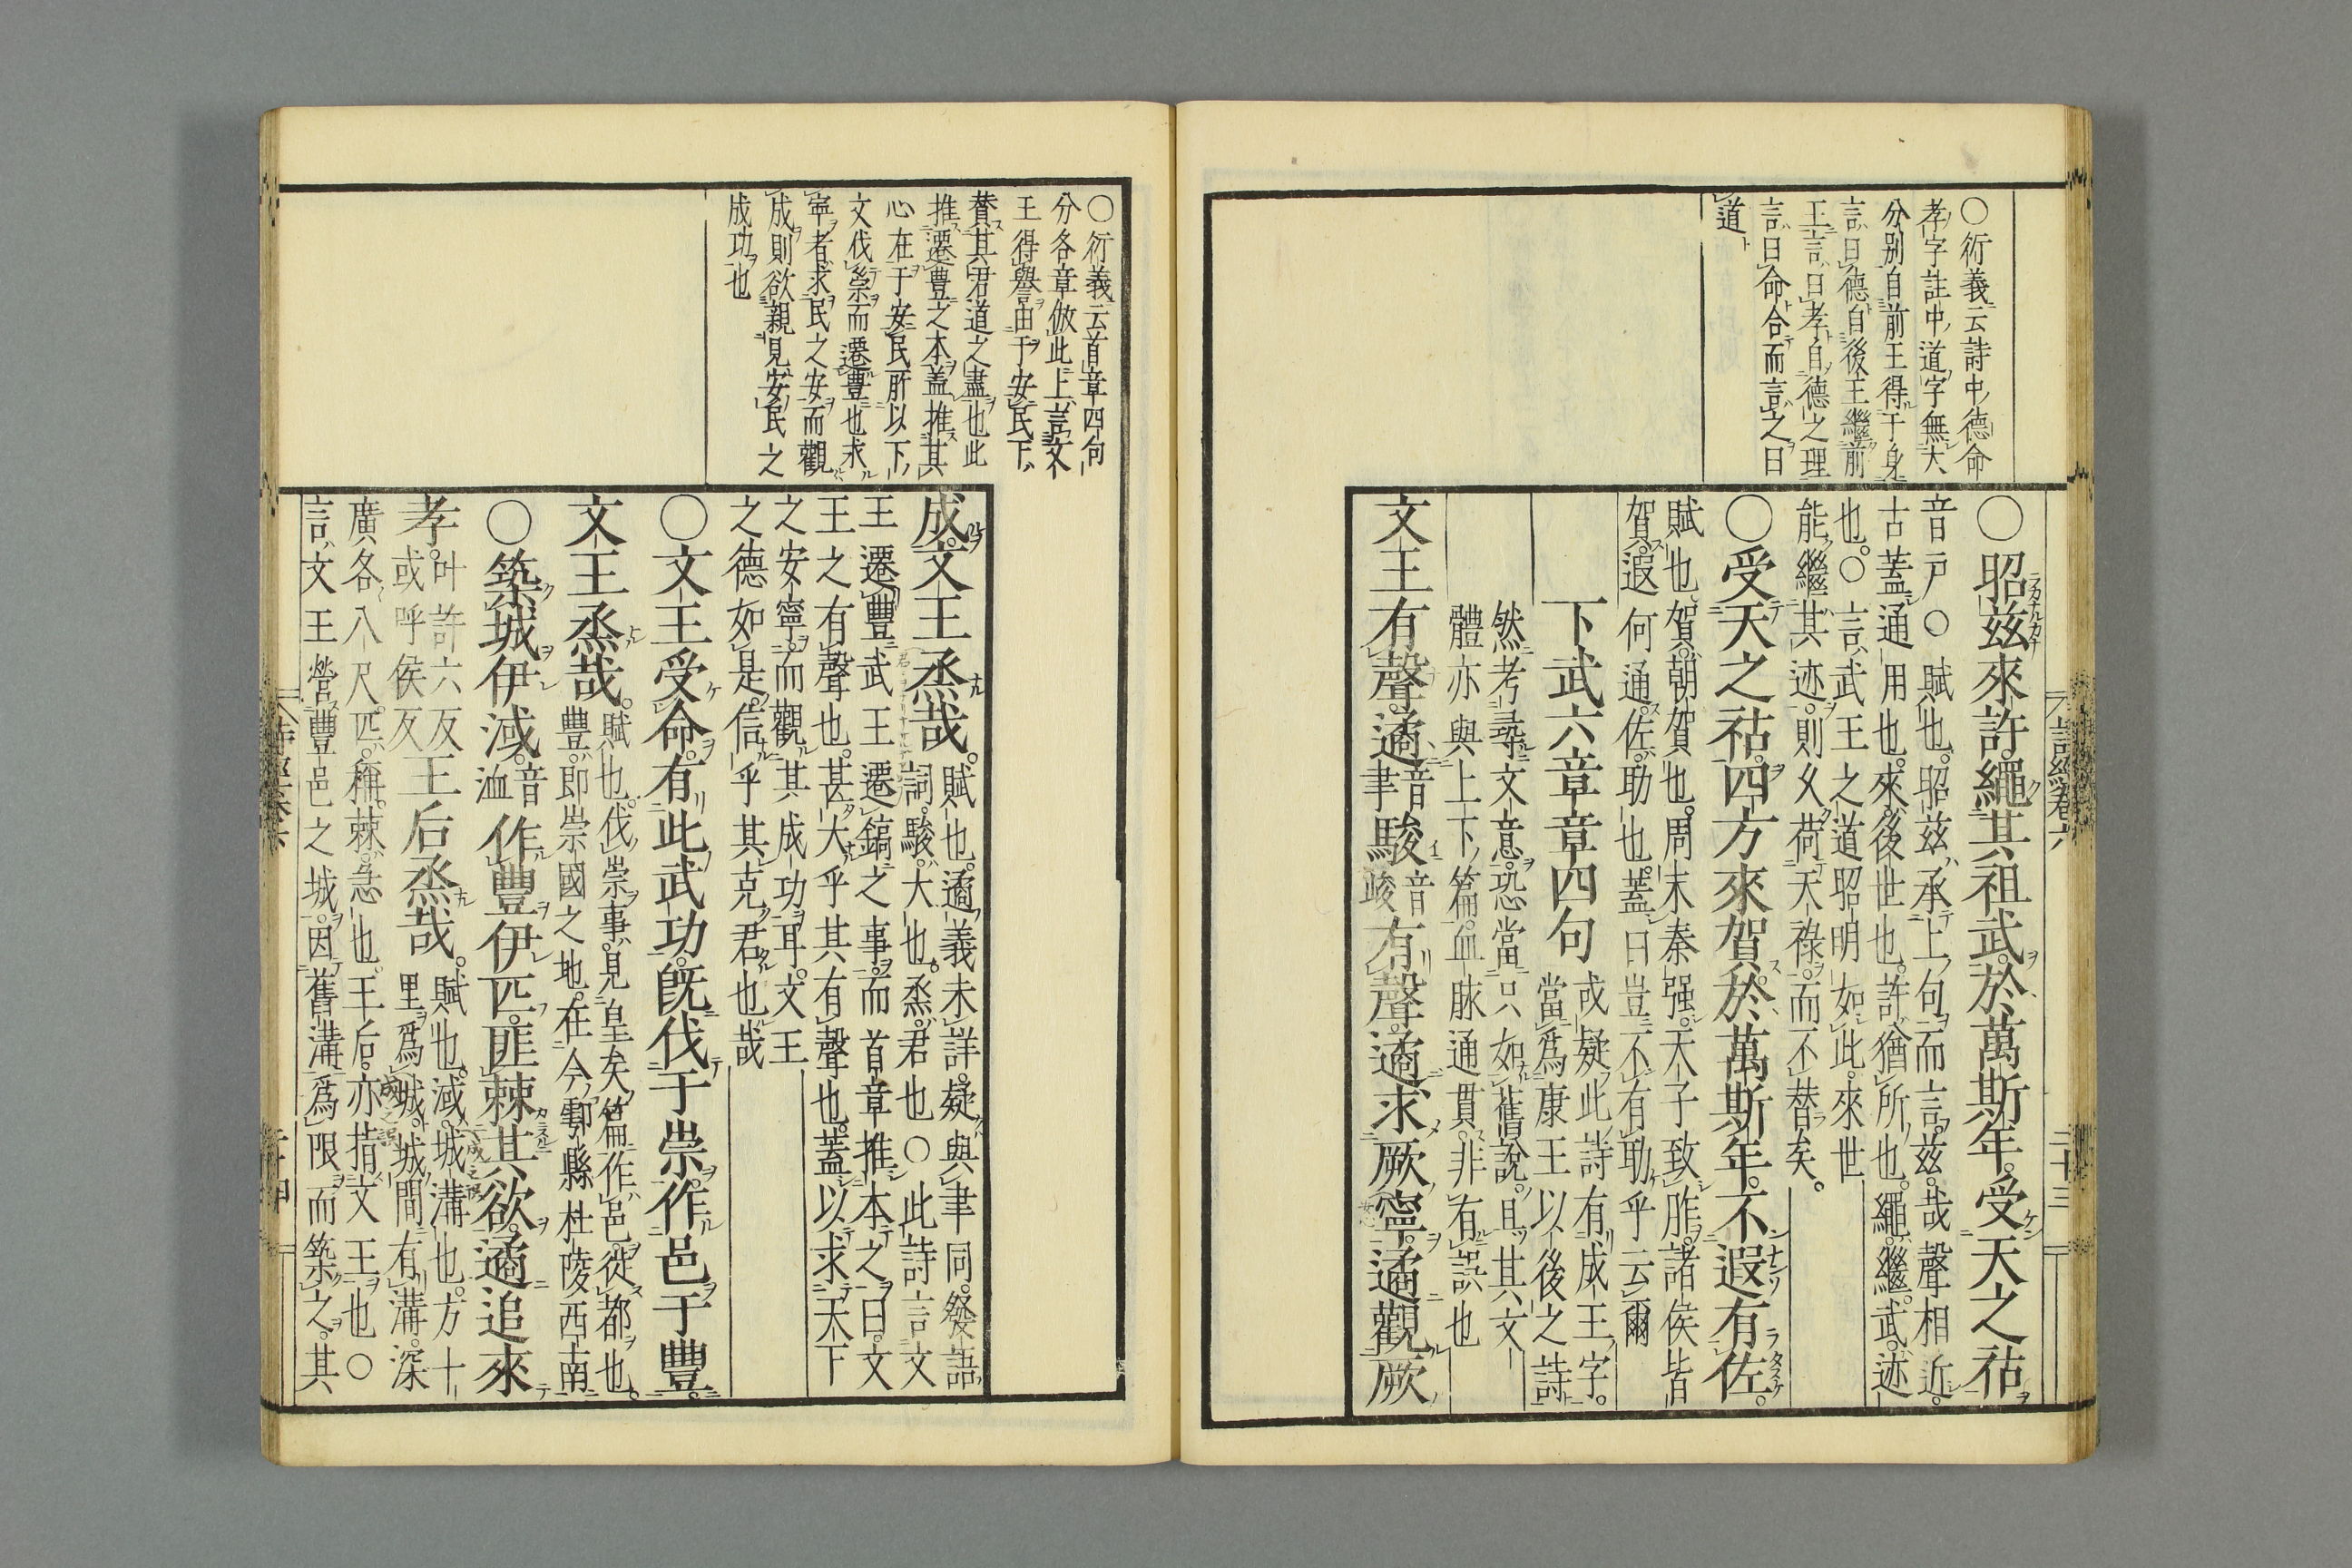 〇衍義云詩中德命
孝字註中道字無大
分別自前王得于身
言曰德自後王繼前
王言曰孝自德之理
言曰命合而言之曰
道
〇昭兹來許繩其祖武於萬斯年受天之祜
音戸〇賦也昭兹承上句而言兹哉聲相近
古蓋通用也來後世也許猶所也繩繼武迹
也〇言武王之道昭明如此來世
能繼其迹則久荷天祿而不替矣
〇受天之祜四方來賀於萬斯年不遐有佐
賦也賀朝賀也周末秦强天子致胙諸侯皆
賀遐何通佐助也蓋曰豈不有助乎云爾
下武六章章四句
或疑此詩有成王字
當爲康王以後之詩
然考尋文意恐當只如舊說且其文
體亦與上下篇血脉通貫非有誤也
文王有聲遹音聿駿音峻有聲遹求厥寧遹觀厥
詩經卷六
二十三
〇衍義云首章四句
分各章倣此上言文
王得譽由于安民下
賛其君道之盡也此
推遷豐之本蓋推其
心在于安民所以下
文伐崇而遷豐也求
寧者求民之安而觀
成則欲親見安民之
成功也
成文王烝哉
賦也遹義未詳疑與聿同發語
詞駿大也烝君也〇此詩言文
王遷豐武王遷鎬之事而首章推本之曰文
王之有聲也甚大乎其有聲也蓋以求天下
之安寧而觀其成功耳文王
之德如是信乎其克君也哉
〇文王受命有此武功旣伐于崇作邑于豐
文王烝哉
賦也伐崇事見皇矣篇作邑徙都也
豐即崇國之地在今鄠縣杜陵西南
〇築城伊淢音洫作豐伊匹匪棘其欲遹追來
孝叶許六反或呼侯反王后烝哉
賦也淢城溝也方十
里爲城城間有溝深
廣各八尺匹稱棘急也王后亦指文王也〇
言文王營豐邑之城因舊溝爲限而築之其